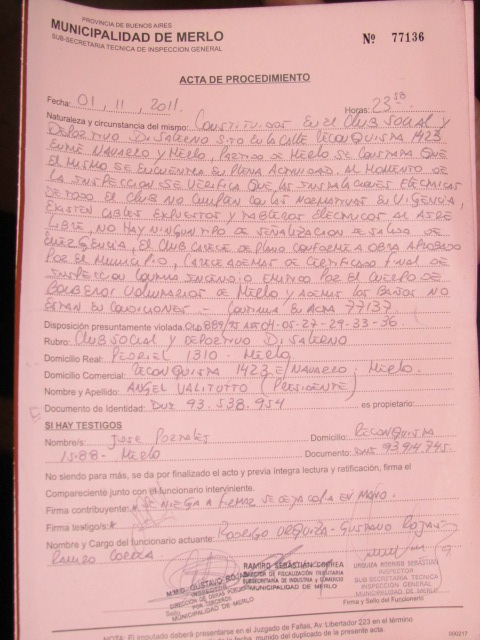 PROVINCIA DE BUENOS AIRES
MUNICIPALIDAD DE MERLO
SUB-SECRETARIA TECNICA DE INSPECCION GENERAL
Nº 77136
ACTA DE PROCEDIMIENTO
Fecha: 01, 11, 2011. Horas: 23
Naturaleza y circunstancia del mismo: CONSTITUIDOS EN EL CLUB SOCIAL Y
DEPORTIVO DI SALERNO SITO EN LA CALLE RECONQUISTA 1423
ENTRE NAVARRO Y MERLO, PARTIDO DE MERLO SE CONSTATA QUE
EL MISMO SE ENCUENTRA EN PLENA ACTIVIDAD, AL MOMENTO DE
LA INSPECCION SE VERIFICA QUE LAS INSTALACIONES ELECTRICAS
DE TODO EL CLUB NO CUMPLEN CON LAS NORMATIVAS EN VIGENCIA,
EXISTEN CABLES EXPUESTOS Y TABLEROS ELECTRICOS AL AIRE
LIBRE, NO HAY NINGUN TIPO DE SEÑALIZACION DE SALIDA DE
EMERGENCIA, EL CLUB CARECE DE PLANO CONFORME A OBRA APROBADO
POR EL MUNICIPIO, CARECE ADEMAS DE CERTIFICADO FINAL DE
INSPECCION CONTRA INCENDIO EMITIDO POR EL CUERPO DE
BOMBEROS VOLUNTARIOS DE MERLO Y ADEMAS LOS BAÑOS NO
ESTAN EN CONDICIONES - CONTINUA EN ACTA 77137
Disposición presuntamente violada: 04-05-27-29-33-36.
Rubro: CLUB SOCIAL Y DEPORTIVO DI SALERNO
Domicilio Real: PEDRIEL 1310 - MERLO
Domicilio Comercial: RECONQUISTA 1423 E/ NAVARRO Y MERLO.
Nombre y Apellido: ANGEL VALITUTTO (PRESIDENTE)
Documento de Identidad: DNI 93.538.954 es propietario:
SI HAY TESTIGOS
Nombre/s: JOSE Domicilio: RECONQUISTA
1588 - MERLO Documento: DNI
No siendo para más, se da por finalizado el acto y previa íntegra lectura y ratificación, firma el
Compareciente junto con el funcionario interviniente.
Firma contribuyente: SE NIEGA A FIRMAR SE DEJA COPIA EN MANO.
Firma testigo/s:
Nombre y Cargo del funcionario actuante: RODRIGO URQUIZA - GUSTAVO ROJAS
RAMIRO CORREA
M.M.O. GUSTAVO ROJAS
INSPECTOR
MUNICIPALIDAD DE MERLO
RAMIRO SEBASTIAN CORREA
DIRECTOR DE FISCALIZACION TRIBUTARIA
SUBSECRETARIA DE INDUSTRIA Y COMERCIO
MUNICIPALIDAD DE MERLO
URQUIZA RODRIGO SEBASTIAN
INSPECTOR
SUB SECRETARIA TECNICA
INSPECCION GENERAL
MUNICIPALIDAD DE MERLO
Firma y Sello del Funcionario
NOTA: El imputado deberá presentarse en el Juzgado de Faltas, Av. Libertador 223 en el término
de la fecha, munido del duplicado de la presente acta.
000217